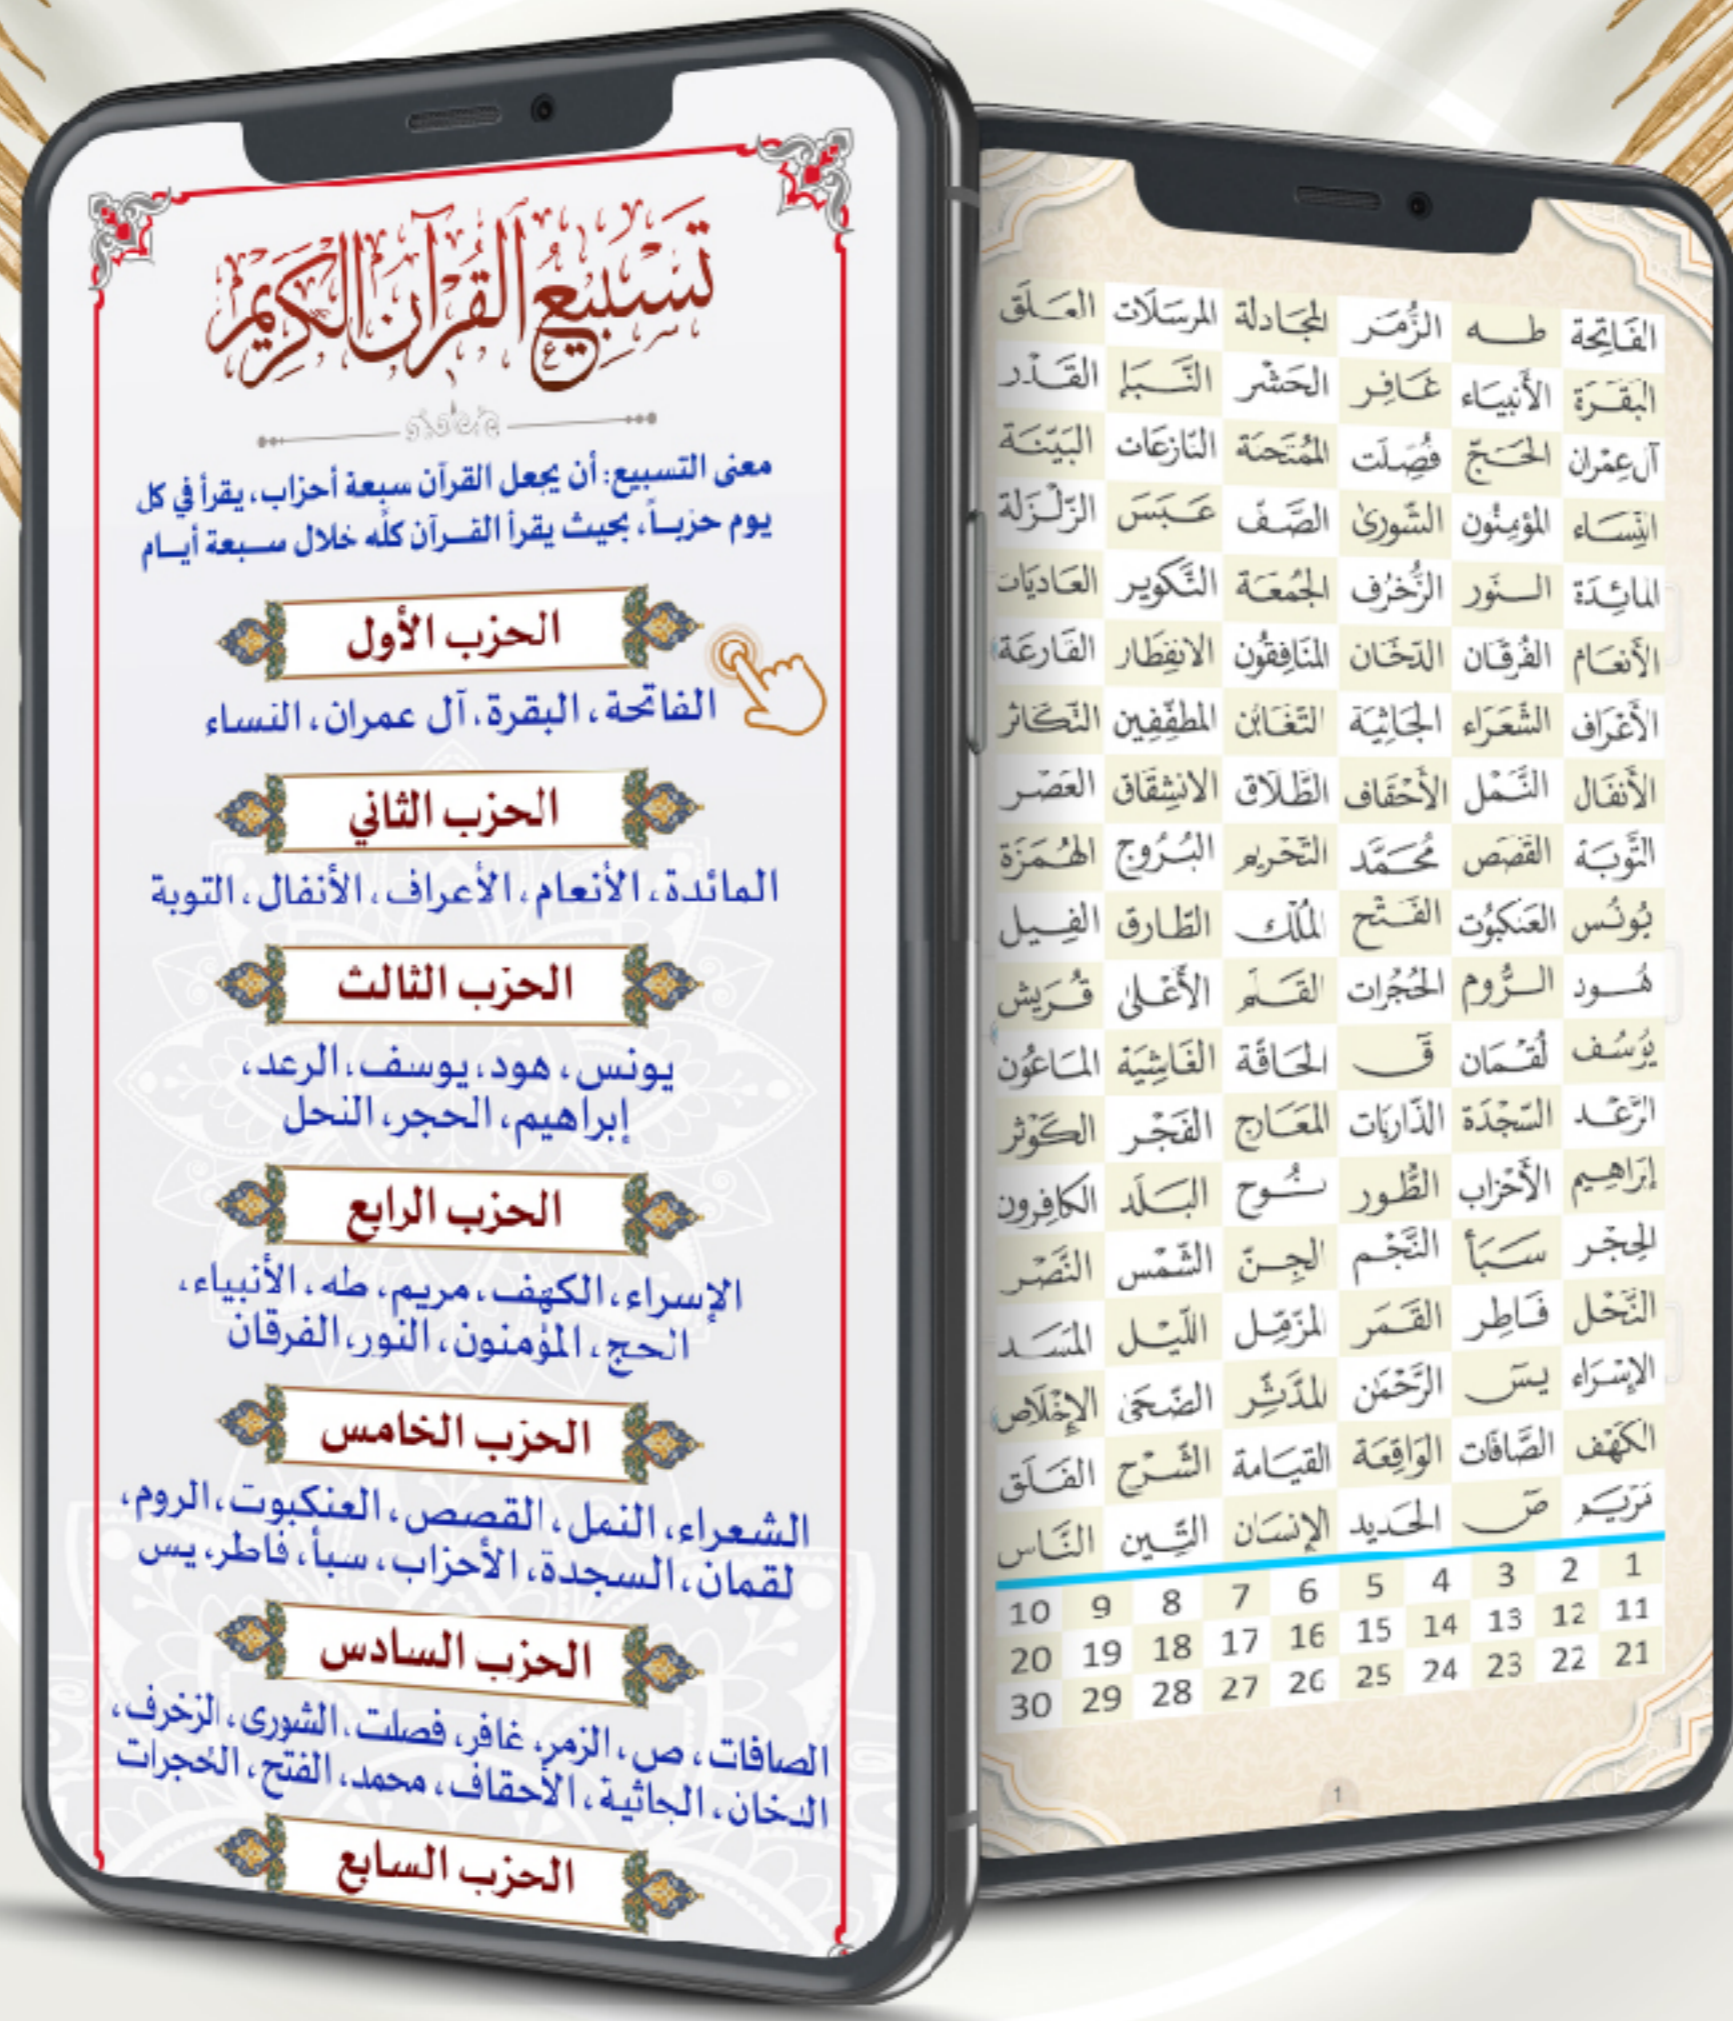 تَسْبِيعُ القُرْآنِ الكَرِيْمِ
معنى التسبيع: أن يجعل القرآن سبعة أحزاب، يقرأ في كل
يوم حزبـاً، بحيث يقرأ القـرآن كلّه خلال سـبعة أيـام
الحزب الأول
الفاتحة، البقرة، آل عمران، النساء
الحزب الثاني
المائدة، الأنعام، الأعراف، الأنفال، التوبة
الحزب الثالث
يونس، هود، يوسف، الرعد،
إبراهيم، الحجر، النحل
الحزب الرابع
الإسراء، الكهف، مريم، طه، الأنبياء،
الحج، المؤمنون، النور، الفرقان
الحزب الخامس
الشعراء، النمل، القصص، العنكبوت، الروم،
لقمان، السجدة، الأحزاب، سبأ، فاطر، يس
الحزب السادس
الصافات، ص، الزمر، غافر، فصلت، الشورى، الزخرف،
الدخان، الجاثية، الأحقاف، محمد، الفتح، الحجرات
الحزب السابع
الفَاتِحة طـه الزُّمَر المجَادلة المرسَلَات العَـلَق
البَقَـرَة الأَنبيَاء غَـافِر الحَشْر النَّـبَإ القَـدْر
آل عِمْران الحَـجّ فُصِّلَت المُمْتَحنَة النّازعَات البَيّنَـة
النِّسَـاء المؤمِنُون الشّورىٰ الصَّـفّ عَـبَسَ الزّلْـزَلة
المائِدَة الـنّور الزُّخرُف الجُمُعَـة التَّكوير العَاديَات
الأَنعَـام الفُرقَـان الدّخَـان المنَافِقُون الانفِطَار القَـارعَة
الأَعْرَاف الشّعَرَاء الجَاثِيَة التّغَابُن المطفِّفِين التّكَاثر
الأَنفَال النَّـمْل الأَحْقَاف الطَّـلَاق الانشِقَاق العَصْـر
التَّوبَـة القَصَص مُحَـمَّد التّحْريم البُـرُوج الهُـمَزَة
يُونُـس العَنكبُوت الفَـتْح المُلْك الطّـارق الفِـيل
هُـود الـرُّوم الحُجُرات القَـلَم الأَعْـلىٰ قُـرَيش
يُوسُف لُقْـمَان قٓ الحَـاقّة الغَاشِيَة المَـاعُون
الرَّعْـد السّجْدَة الذّاريَات المعَـارج الفَجْـر الكَوْثر
إبرَاهِـيم الأَحْزاب الطُّـور نُـوح البَـلَد الكافِرون
الحِجْـر سَـبَأ النَّجْـم الجِـنّ الشَّمْس النَّصْـر
النَّحْل فَـاطِر القَـمَر المزّمِّل اللّيْـل المَسَـد
الإِسْـرَاء يسٓ الرَّحْمَٰن المدَّثِّر الضّحَىٰ الإِخْلَاص
الكَهْف الصَّافات الوَاقِعَة القيَـامة الشَّـرْح الفَـلَق
مَرْيَـم صٓ الحَـديد الإنسَان التِّـين النَّـاس
1 2 3 4 5 6 7 8 9 10
11 12 13 14 15 16 17 18 19 20
21 22 23 24 25 26 27 28 29 30
1